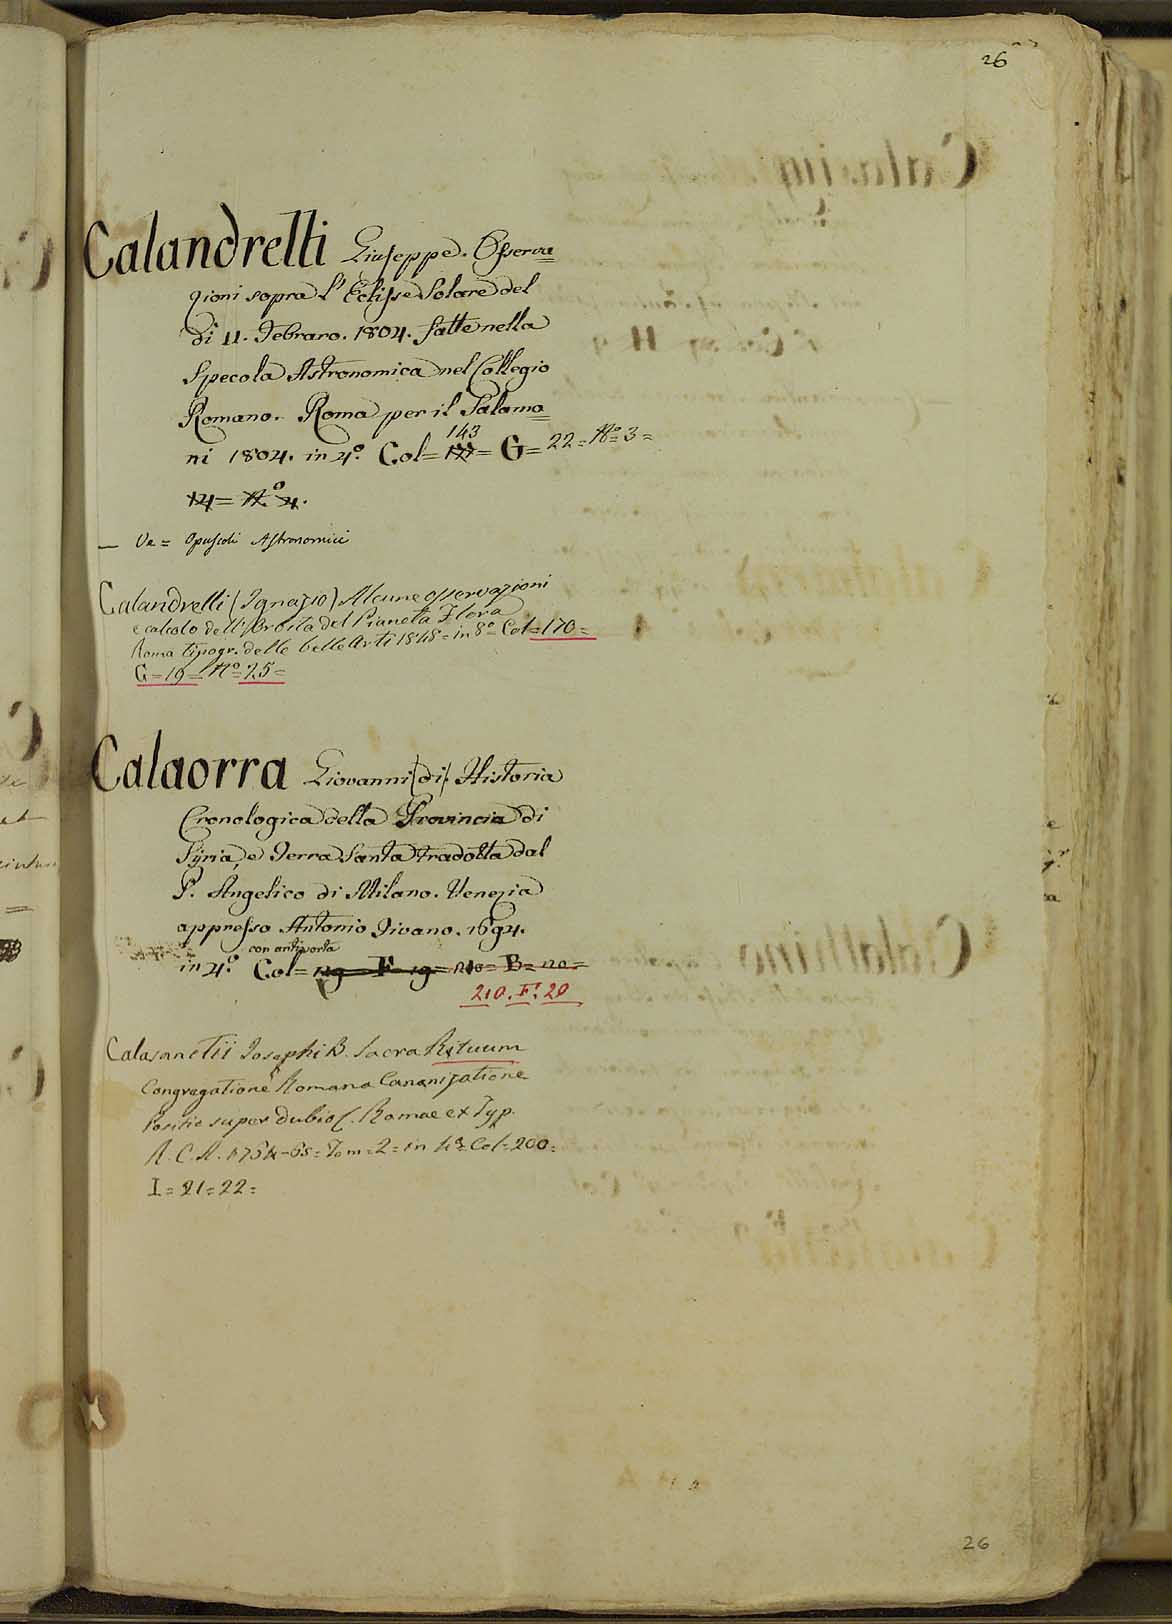 26
Calandrelli Giuseppe. Osserva=
zioni sopra l' Eclisse Solare del
di 11. Febraro. 1804. fatte nella
Specola Astronomica nel Collegio
Romano. Roma per il Salomo=
ni 1804. in 4.º Col= 143 = G= 22= Nº= 3=
14= Nº 4.
— Ve= Opuscoli Astronomici
Calandrelli (Ignazio) Alcune osservazioni
e calcolo dell'Orbita del Pianeta Flora
Roma tipogr. delle belle Arti 1848= in 8º= Col=170=
G=19= Nº=25=
Calaorra Giovanni (di) Historia
Cronologica della Provincia di
Syria, e Terra Santa tradotta dal
P. Angelico di Milano. Venezia
appresso Antonio Tivano. 1694.
con antiporta
in 4.º Col= 119 F 19= 210= B= 120=
210. F. 20
Calasanctii Josephi B. Sacra Rituum
Congregatione Romana Canonizatione
Positio super dubio &c. Romae ex Typ.
R. C. A. 1764-65= Tom=2= in 4º= Col=200=
I= 21= 22=
26